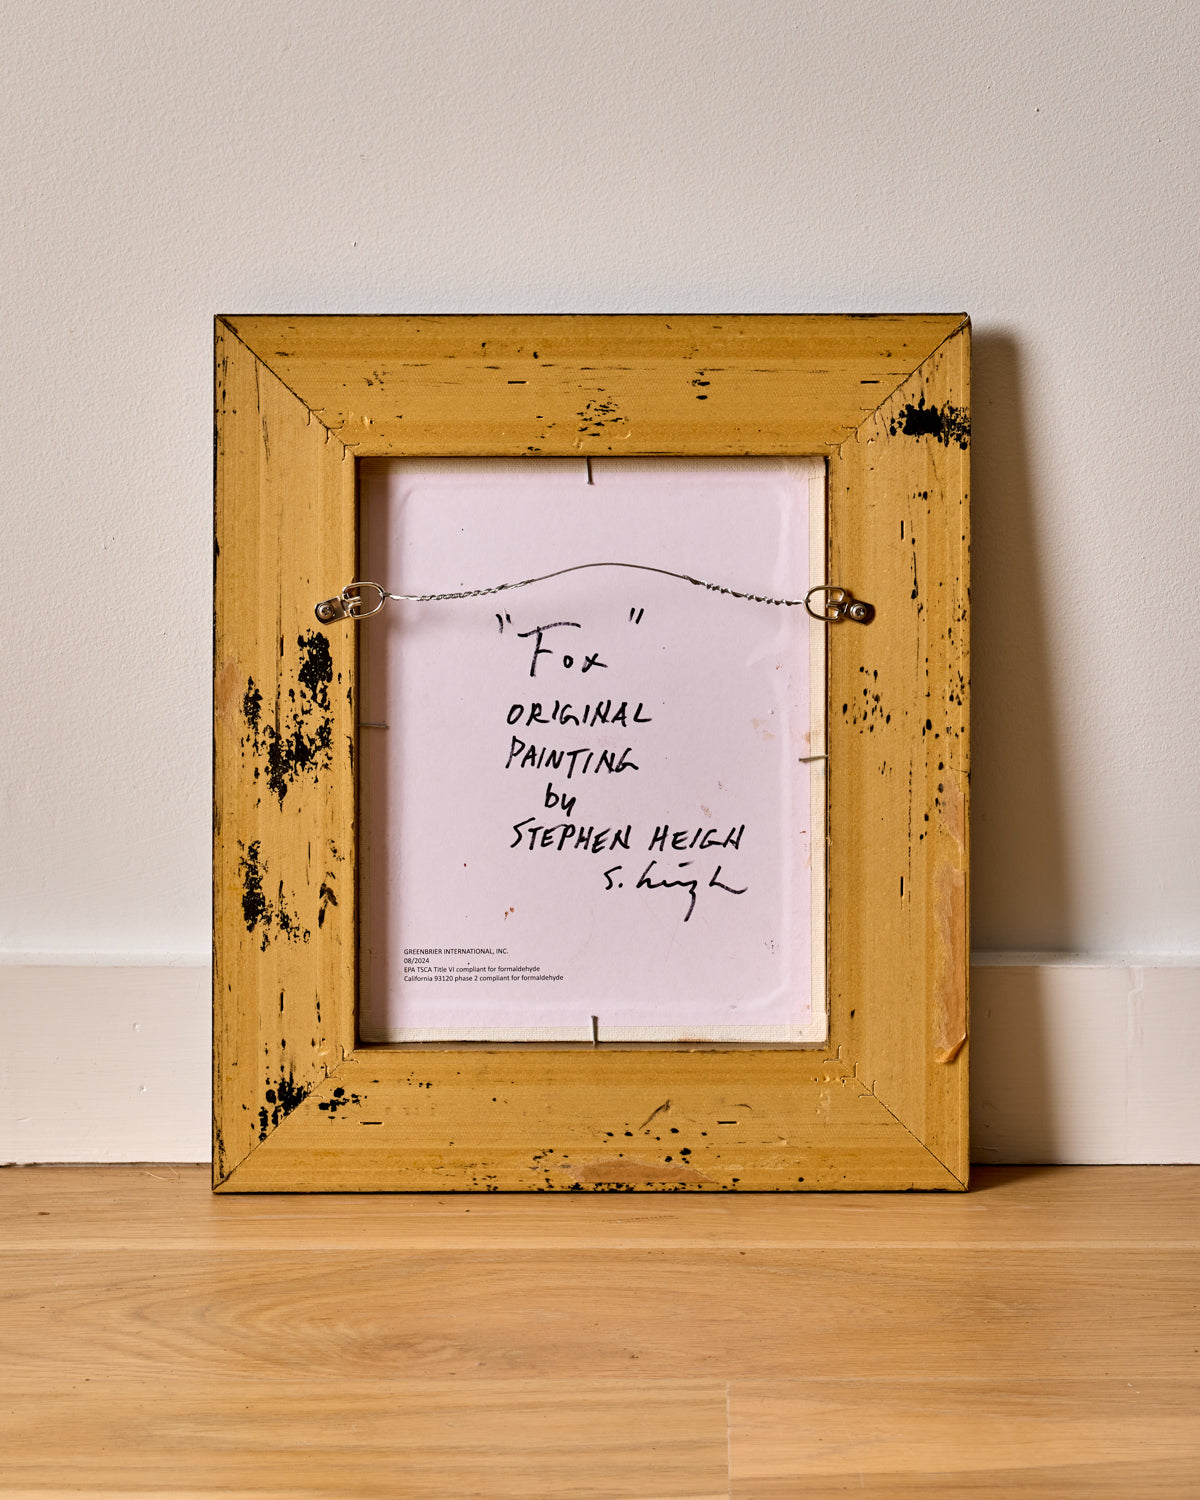 "Fox"
ORIGINAL
PAINTING
by
STEPHEN HEIGH
S. Heigh
GREENBRIER INTERNATIONAL, INC.
08/2024
EPA TSCA Title VI compliant for formaldehyde
California 93120 phase 2 compliant for formaldehyde